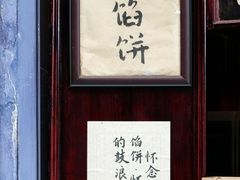 馅饼
怀念
馅饼·怀
的鼓浪